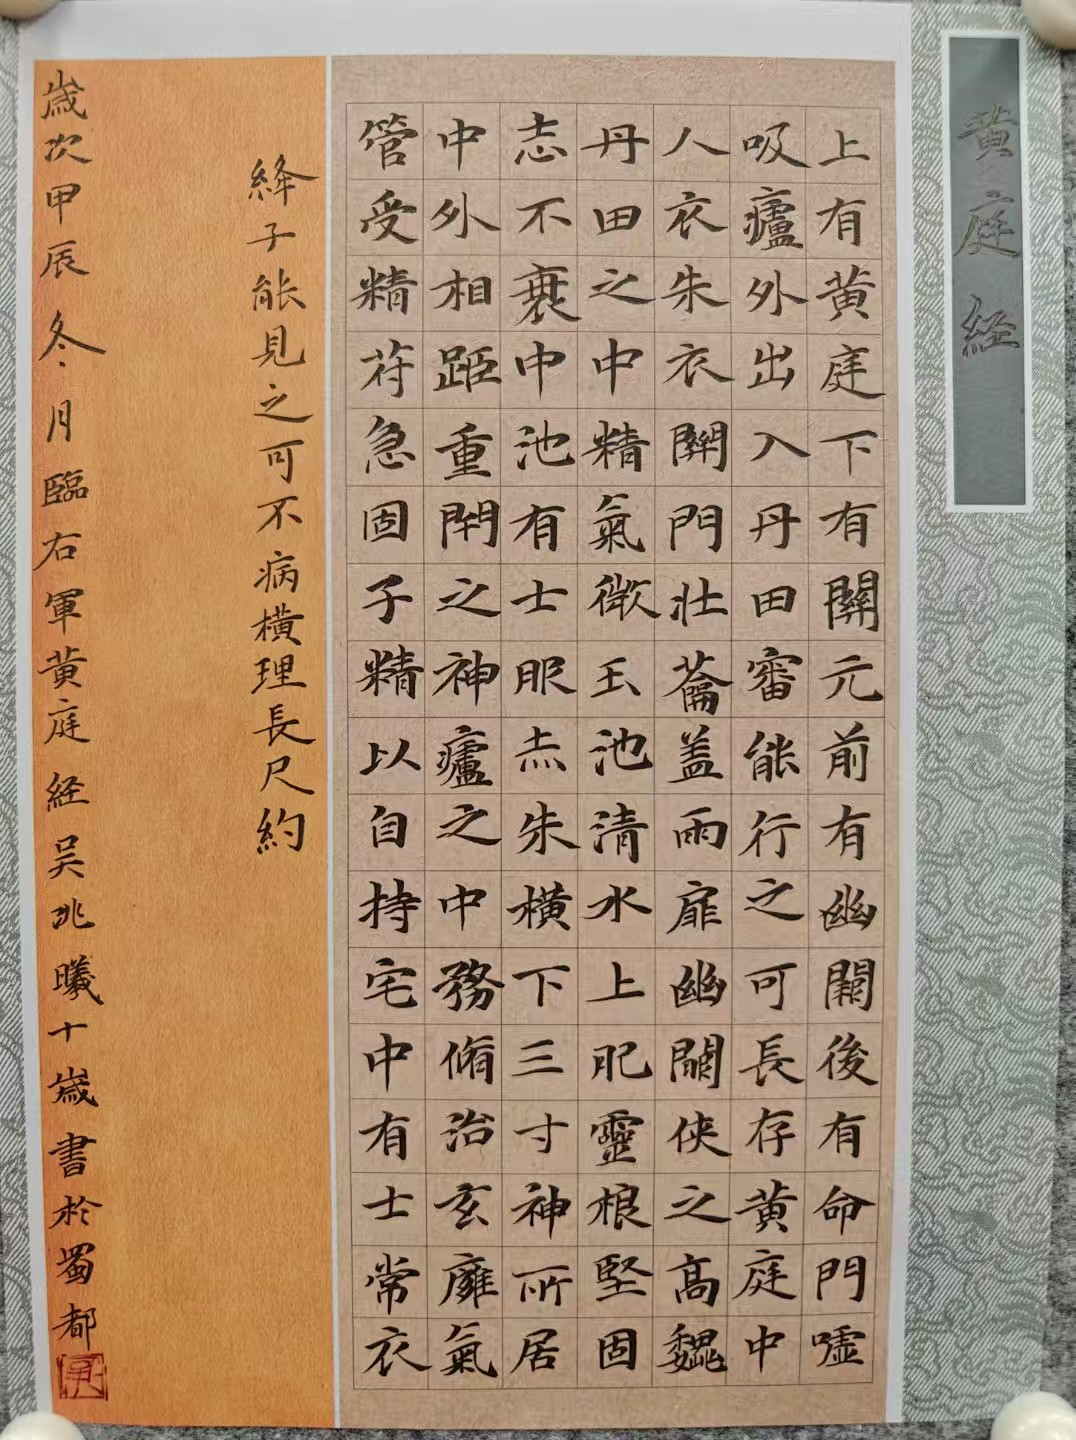 黄庭经
上有黄庭下有關元前有幽闕後有命門噓
吸廬外出入丹田審能行之可長存黄庭中
人衣朱衣關門壯蘥蓋兩扉幽闕俠之高魏
丹田之中精氣微玉池清水上肥靈根堅固
志不衰中池有士服赤朱橫下三寸神所居
中外相距重閇之神廬之中務脩治玄癰氣
管受精苻急固子精以自持宅中有士常衣
絳子能見之可不病橫理長尺約
歲次甲辰冬月臨右軍黄庭经吴兆曦十歲書於蜀都